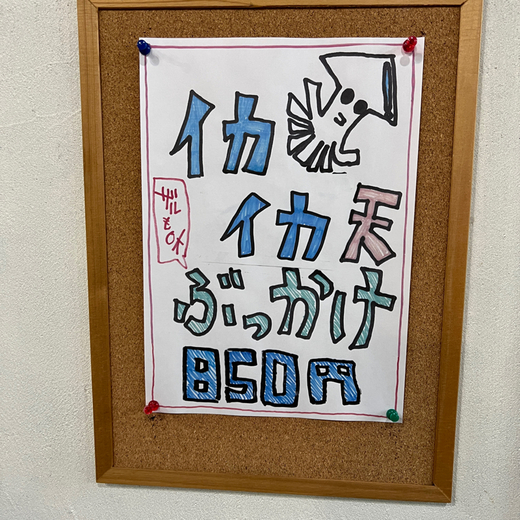 イカ
イカ天
ぶっかけ
850円
ザルもOK